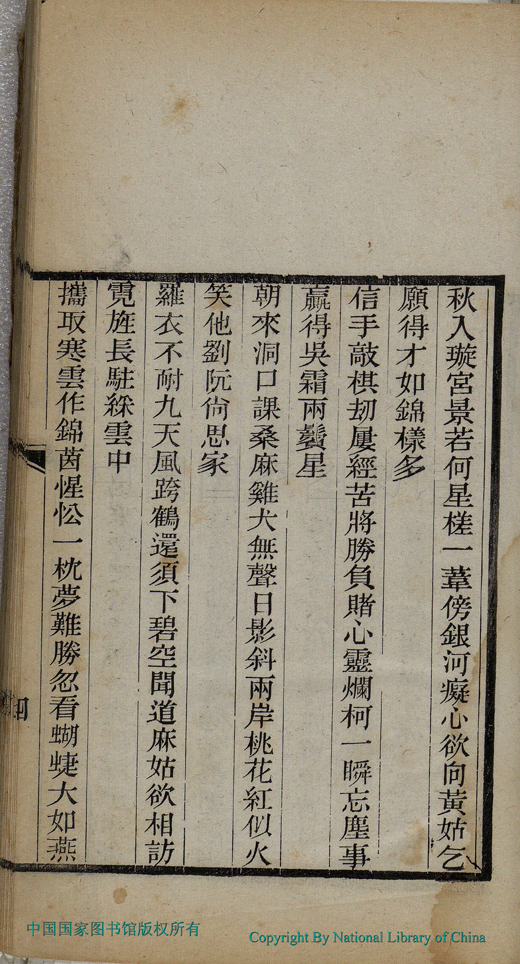 秋入璇宮景若何星槎一葦傍銀河癡心欲向黃姑乞
願得才如錦樣多
信手敲棋刼屢經苦將勝負賭心靈爛柯一瞬忘塵事
贏得吳霜兩鬢星
朝來洞口課桑麻雞犬無聲日影斜兩岸桃花紅似火
笑他劉阮尙思家
羅衣不耐九天風跨鶴還須下碧空聞道麻姑欲相訪
霓旌長駐綵雲中
攜取寒雲作錦茵惺忪一枕夢難勝忽看蝴蜨大如燕
四
中国国家图书馆版权所有
Copyright By National Library of China